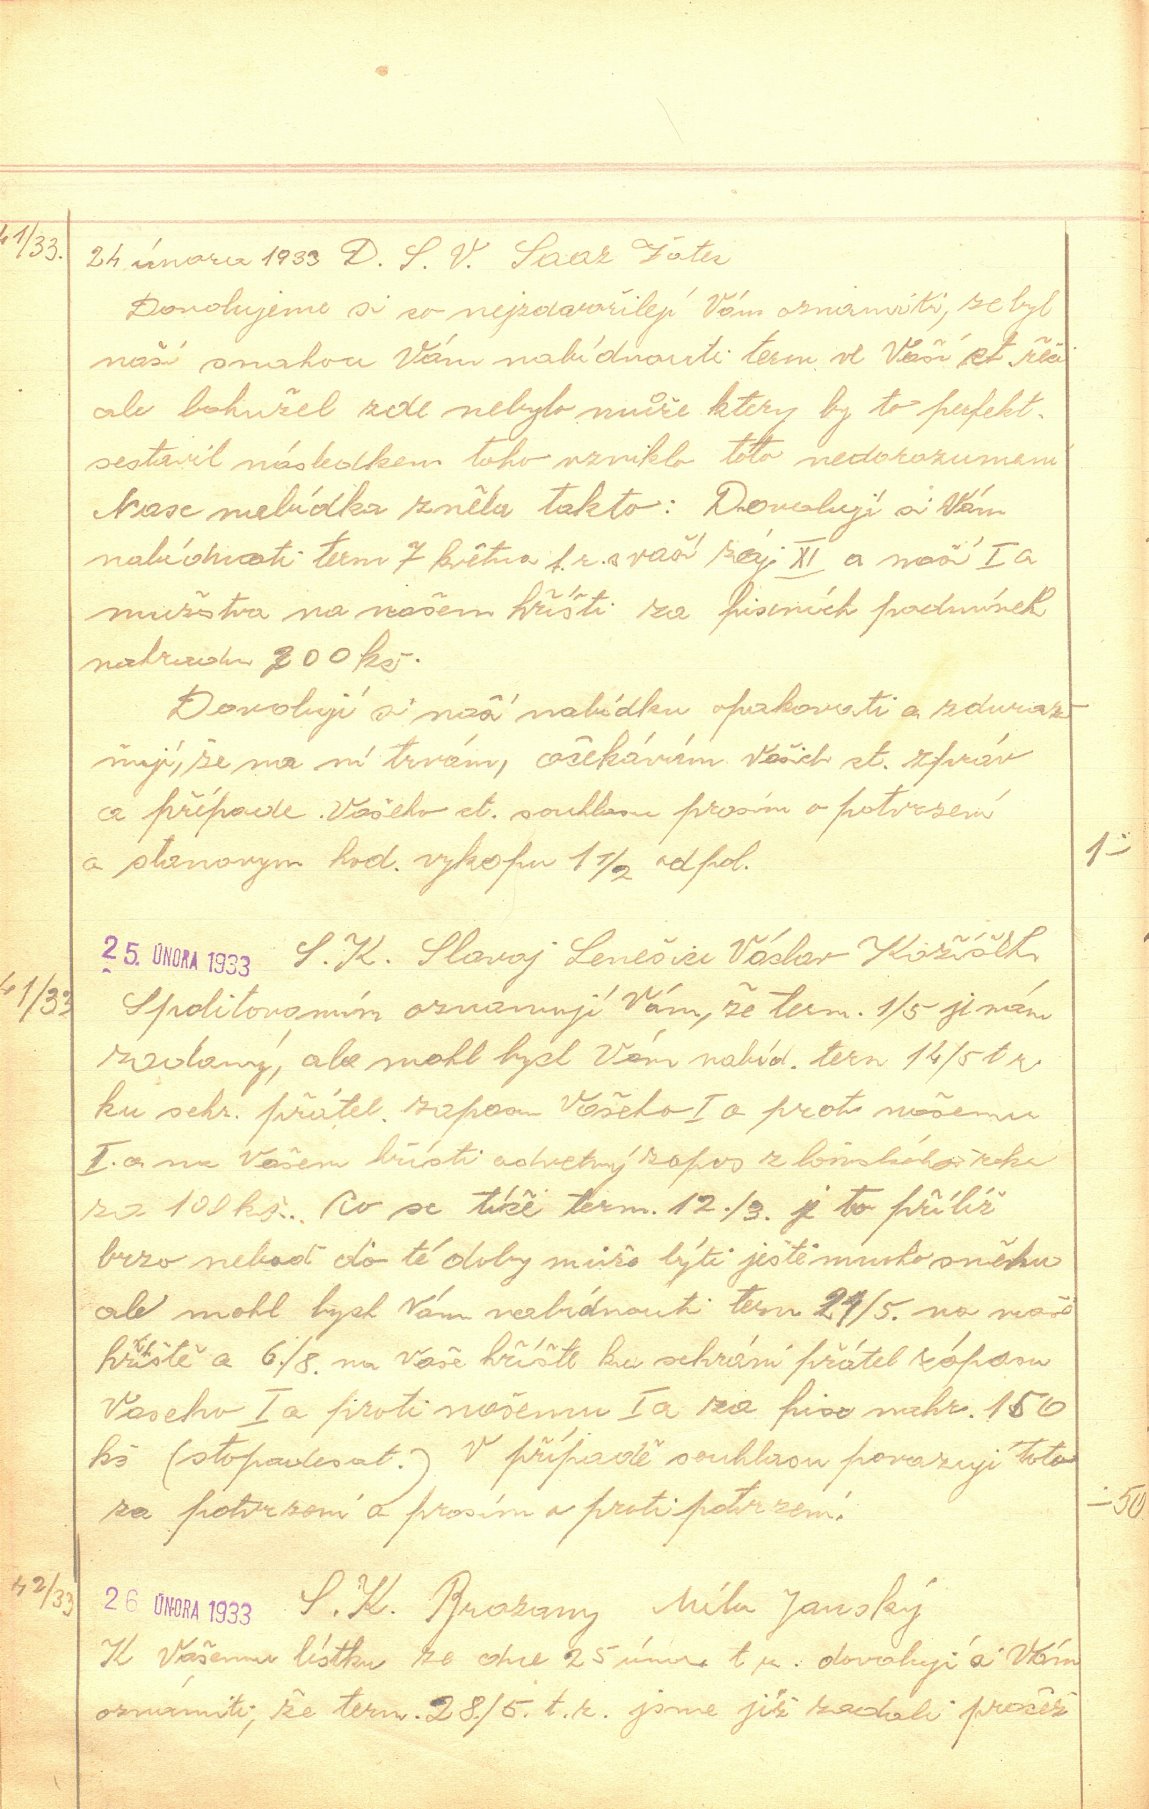 41/33.
24 února 1933 D. S. V. Saaz Žatec
Dovolujeme si co nejzdvořileji Vám oznámiti, že byl
naší snahou Vám nabídnouti term. ve Vaší ct. řeči
ale bohužel zde nebylo muže ktery by to perfekt.
sestavil následkem toho vzniklo toto nedorozumení
Nase nabídka zněla takto: Dovoluji si Vám
nabídnouti term 7 května t. r. s vaší záj. XI a naší I a
mužstva na našem hřišti za fisemích podmínek
nahradu 200 kč.
Dovoluji si naší nabídku opakovati a zduraz-
ňuji, že na ní trvám, očekávám Vašich ct. zpráv
a případe Vašeho ct. souhlasu prosím o potvrzení
a stanovym hod. vykopu 1 1/2 odpol.
1-
25. ÚNORA 1933 S. K. Slavoj Lenešice Václav Kožíšek
41/33
S politovaním oznamuji Vám, že term. 1/5 je nám
zadaný, ale mohl bych Vám nabíd. term 14/5 t r.
ku sehr. přátel. zapasu Vašeho I a proti našemu
I. a na Vašem hřisti odvetný zapas z loňského roku
za 100 kč.. Co se tíče term. 12./3. je to příliž
brzo neboť do té doby může býti ještě mnoho sněhu
ale mohl bych Vám nabídnouti term 21/5. na naše
hřiště a 6./8. na vaše hříšte ku sehrání přátel zápasu
Vaseho I a proti našemu I a za fise nahr. 150
kč (stopadesat.) V případě souhlasu povazuji toto
za potvrzení a prosím o proti potvrzení.
-50
42/33
26 ÚNORA 1933 S. K. Brozany Míla Janský
K Vašemu lístku ze dne 25 února t r. dovoluji si Vám
oznámiti, že term. 28./5. t. r. jsme již zadali proěž